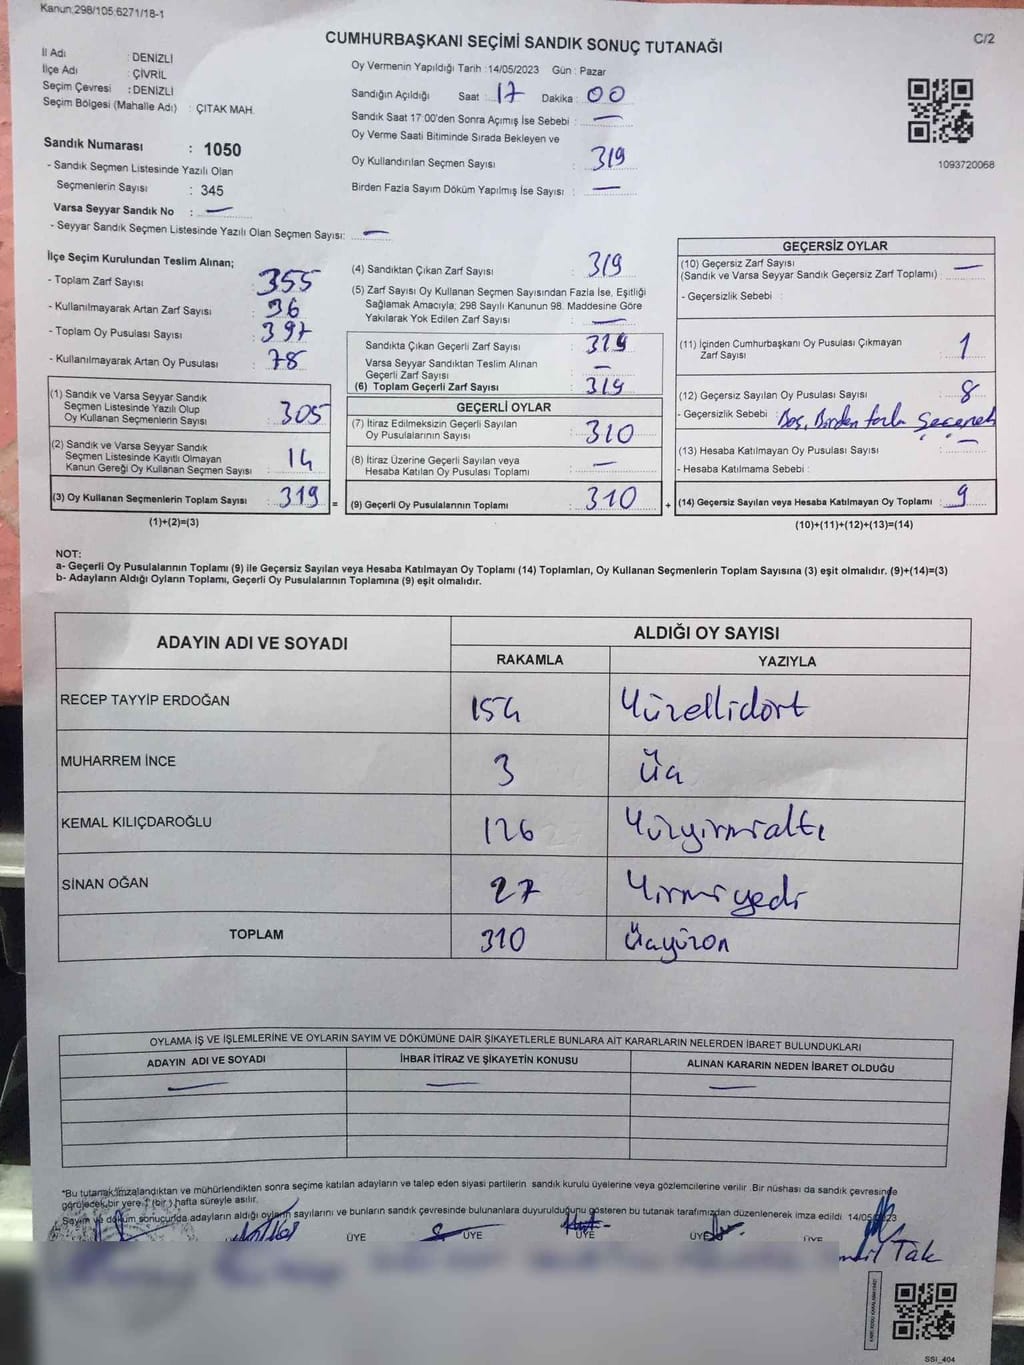 Kanun:298/105:6271/18-1
CUMHURBAŞKANI SEÇİMİ SANDIK SONUÇ TUTANAĞI
C/2
İl Adı : DENİZLİ
İlçe Adı : ÇİVRİL
Seçim Çevresi : DENİZLİ
Seçim Bölgesi (Mahalle Adı) : ÇITAK MAH.
Oy Vermenin Yapıldığı Tarih :14/05/2023 Gün : Pazar
Sandığın Açıldığı Saat : 17 Dakika : 00
Sandık Saat 17:00'den Sonra Açımış İse Sebebi : —
Oy Verme Saati Bitiminde Sırada Bekleyen ve
Oy Kullandırılan Seçmen Sayısı : 319
Birden Fazla Sayım Döküm Yapılmış İse Sayısı : —
1093720068
Sandık Numarası : 1050
- Sandık Seçmen Listesinde Yazılı Olan
Seçmenlerin Sayısı : 345
Varsa Seyyar Sandık No : —
- Seyyar Sandık Seçmen Listesinde Yazılı Olan Seçmen Sayısı: —
İlçe Seçim Kurulundan Teslim Alınan;
- Toplam Zarf Sayısı : 355
- Kullanılmayarak Artan Zarf Sayısı : 36
- Toplam Oy Pusulası Sayısı : 397
- Kullanılmayarak Artan Oy Pusulası : 78
(1) Sandık ve Varsa Seyyar Sandık
Seçmen Listesinde Yazılı Olup
Oy Kullanan Seçmenlerin Sayısı : 305
(2) Sandık ve Varsa Seyyar Sandık
Seçmen Listesinde Kayıtlı Olmayan
Kanun Gereği Oy Kullanan Seçmen Sayısı : 14
(3) Oy Kullanan Seçmenlerin Toplam Sayısı : 319 =
(1)+(2)=(3)
(4) Sandıktan Çıkan Zarf Sayısı : 319
(5) Zarf Sayısı Oy Kullanan Seçmen Sayısından Fazla İse, Eşitliği
Sağlamak Amacıyla; 298 Sayılı Kanunun 98. Maddesine Göre
Yakılarak Yok Edilen Zarf Sayısı : —
Sandıkta Çıkan Geçerli Zarf Sayısı : 319
Varsa Seyyar Sandıktan Teslim Alınan
Geçerli Zarf Sayısı : —
(6) Toplam Geçerli Zarf Sayısı : 319
GEÇERLİ OYLAR
(7) İtiraz Edilmeksizin Geçerli Sayılan
Oy Pusulalarının Sayısı : 310
(8) İtiraz Üzerine Geçerli Sayılan veya
Hesaba Katılan Oy Pusulası Toplamı : —
(9) Geçerli Oy Pusulalarının Toplamı : 310 +
GEÇERSİZ OYLAR
(10) Geçersiz Zarf Sayısı
(Sandık ve Varsa Seyyar Sandık Geçersiz Zarf Toplamı) : —
- Geçersizlik Sebebi :
(11) İçinden Cumhurbaşkanı Oy Pusulası Çıkmayan
Zarf Sayısı : 1
(12) Geçersiz Sayılan Oy Pusulası Sayısı : 8
- Geçersizlik Sebebi : Boş, Birden fazla Seçenek
(13) Hesaba Katılmayan Oy Pusulası Sayısı : —
- Hesaba Katılmama Sebebi :
(14) Geçersiz Sayılan veya Hesaba Katılmayan Oy Toplamı : 9
(10)+(11)+(12)+(13)=(14)
NOT:
a- Geçerli Oy Pusulalarının Toplamı (9) ile Geçersiz Sayılan veya Hesaba Katılmayan Oy Toplamı (14) Toplamları, Oy Kullanan Seçmenlerin Toplam Sayısına (3) eşit olmalıdır. (9)+(14)=(3)
b- Adayların Aldığı Oyların Toplamı, Geçerli Oy Pusulalarının Toplamına (9) eşit olmalıdır.
ADAYIN ADI VE SOYADI ALDIĞI OY SAYISI
RAKAMLA YAZIYLA
RECEP TAYYİP ERDOĞAN 154 Yüzellidört
MUHARREM İNCE 3 Üç
KEMAL KILIÇDAROĞLU 126 Yüzyirmialtı
SİNAN OĞAN 27 Yirmiyedi
TOPLAM 310 Üçyüzon
OYLAMA İŞ VE İŞLEMLERİNE VE OYLARIN SAYIM VE DÖKÜMÜNE DAİR ŞİKAYETLERLE BUNLARA AİT KARARLARIN NELERDEN İBARET BULUNDUKLARI
ADAYIN ADI VE SOYADI İHBAR İTİRAZ VE ŞİKAYETİN KONUSU ALINAN KARARIN NEDEN İBARET OLDUĞU
— — —
"Bu tutanak,imzalandıktan ve mühürlendikten sonra seçime katılan adayların ve talep eden siyasi partilerin sandık kurulu üyelerine veya gözlemcilerine verilir .Bir nüshası da sandık çevresinde
görülecek bir yere 1 (bir ) hafta süreyle asılır.
Sayım ve döküm sonucunda adayların aldığı oyların sayılarını ve bunların sandık çevresinde bulunanlara duyurulduğunu gösteren bu tutanak tarafımızdan düzenlenerek imza edildi 14/05/2023
ÜYE ÜYE ÜYE ÜYE ÜYE
Tak
SSI_404